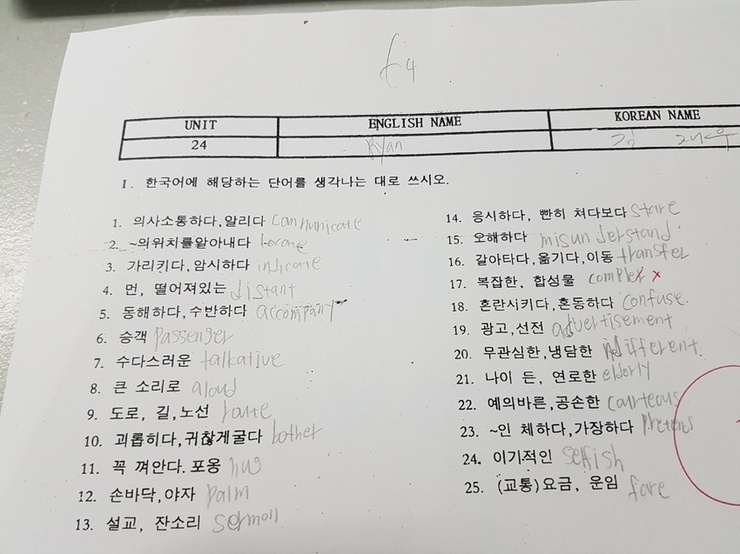 64
UNIT ENGLISH NAME KOREAN NAME
24 Ryan 김
I. 한국어에 해당하는 단어를 생각나는 대로 쓰시오.
1. 의사소통하다,알리다 communicate
2. ~의위치를알아내다 locate
3. 가리키다,암시하다 indicate
4. 먼, 떨어져있는 distant
5. 동행하다,수반하다 accompany
6. 승객 passenger
7. 수다스러운 talkative
8. 큰 소리로 aloud
9. 도로, 길,노선 route
10. 괴롭히다,귀찮게굴다 bother
11. 꼭 껴안다.포옹 hug
12. 손바닥,야자 palm
13. 설교, 잔소리 sermon
14. 응시하다, 빤히 쳐다보다 stare
15. 오해하다 misunderstand
16. 갈아타다,옮기다,이동 transfer
17. 복잡한, 합성물 complex x
18. 혼란시키다,혼동하다 confuse.
19. 광고,선전 advertisement
20. 무관심한,냉담한 indifferent.
21. 나이 든, 연로한 elderly
22. 예의바른,공손한 courteous
23. ~인 체하다,가장하다
24. 이기적인 selfish
25. (교통)요금, 운임 fare